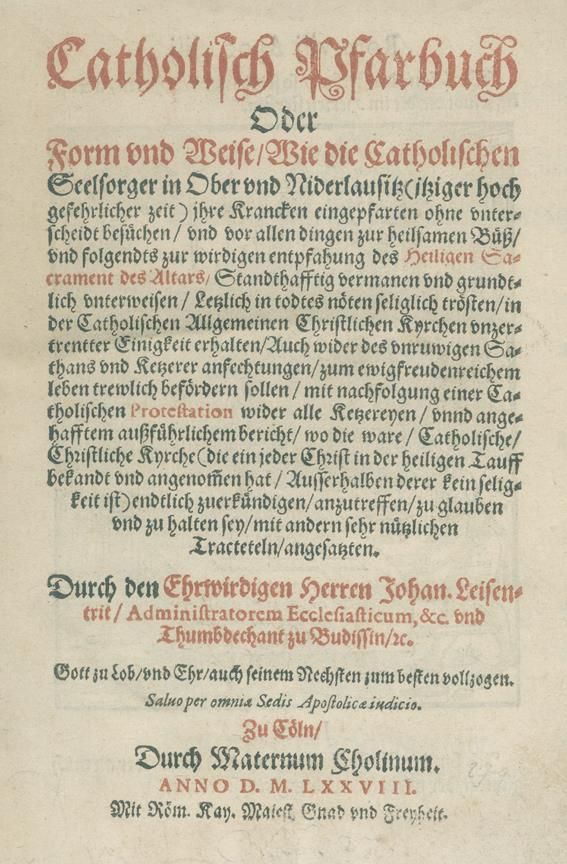 Catholisch Pfarbuch
Oder
Form vnd Weise/Wie die Catholischen
Seelsorger in Ober vnd Niderlausitz(itziger hoch
gefehrlicher zeit) jhre Krancken eingepfarten ohne vnter-
scheidt besüchen/ vnd vor allen dingen zur heilsamen Büß/
vnd folgendts zur wirdigen entpfahung des Heiligen Sa-
crament des Altars/ Standthafftig vermanen vnd grundt-
lich vnterweisen/ Letzlich in todtes nöten seliglich trösten/in
der Catholischen Allgemeinen Christlichen Kyrchen vnzer-
trentter Einigkeit erhalten/Auch wider des vnruwigen Sa-
thans vnd Ketzerer anfechtungen/zum ewigfreudenreichem
leben trewlich befördern sollen/ mit nachfolgung einer Ca-
tholischen Protestation wider alle Ketzereyen/ vnnd ange-
hafftem außführlichem bericht/ wo die ware/ Catholische/
Christliche Kyrche(die ein jeder Christ in der heiligen Tauff
bekandt vnd angenom̃en hat/ Ausserhalben derer kein selig-
keit ist)endtlich zuerkündigen/anzutreffen/zu glauben
vnd zu halten sey/mit andern sehr nützlichen
Tracteteln/angesatzten.
Durch den Ehrwirdigen Herren Johan. Leisen-
trit/ Administratorem Ecclesiasticum, &c. vnd
Thumbdechant zu Budissin/ꝛc.
Gott zu Lob/vnd Ehr/auch seinem Nechsten zum besten vollzogen.
Saluo per omnia Sedis Apostolicæ iudicio.
Zu Cöln/
Durch Maternum Cholinum.
ANNO D. M. LXXVIII.
Mit Röm. Kay. Maiest. Gnad vnd Freyheit.